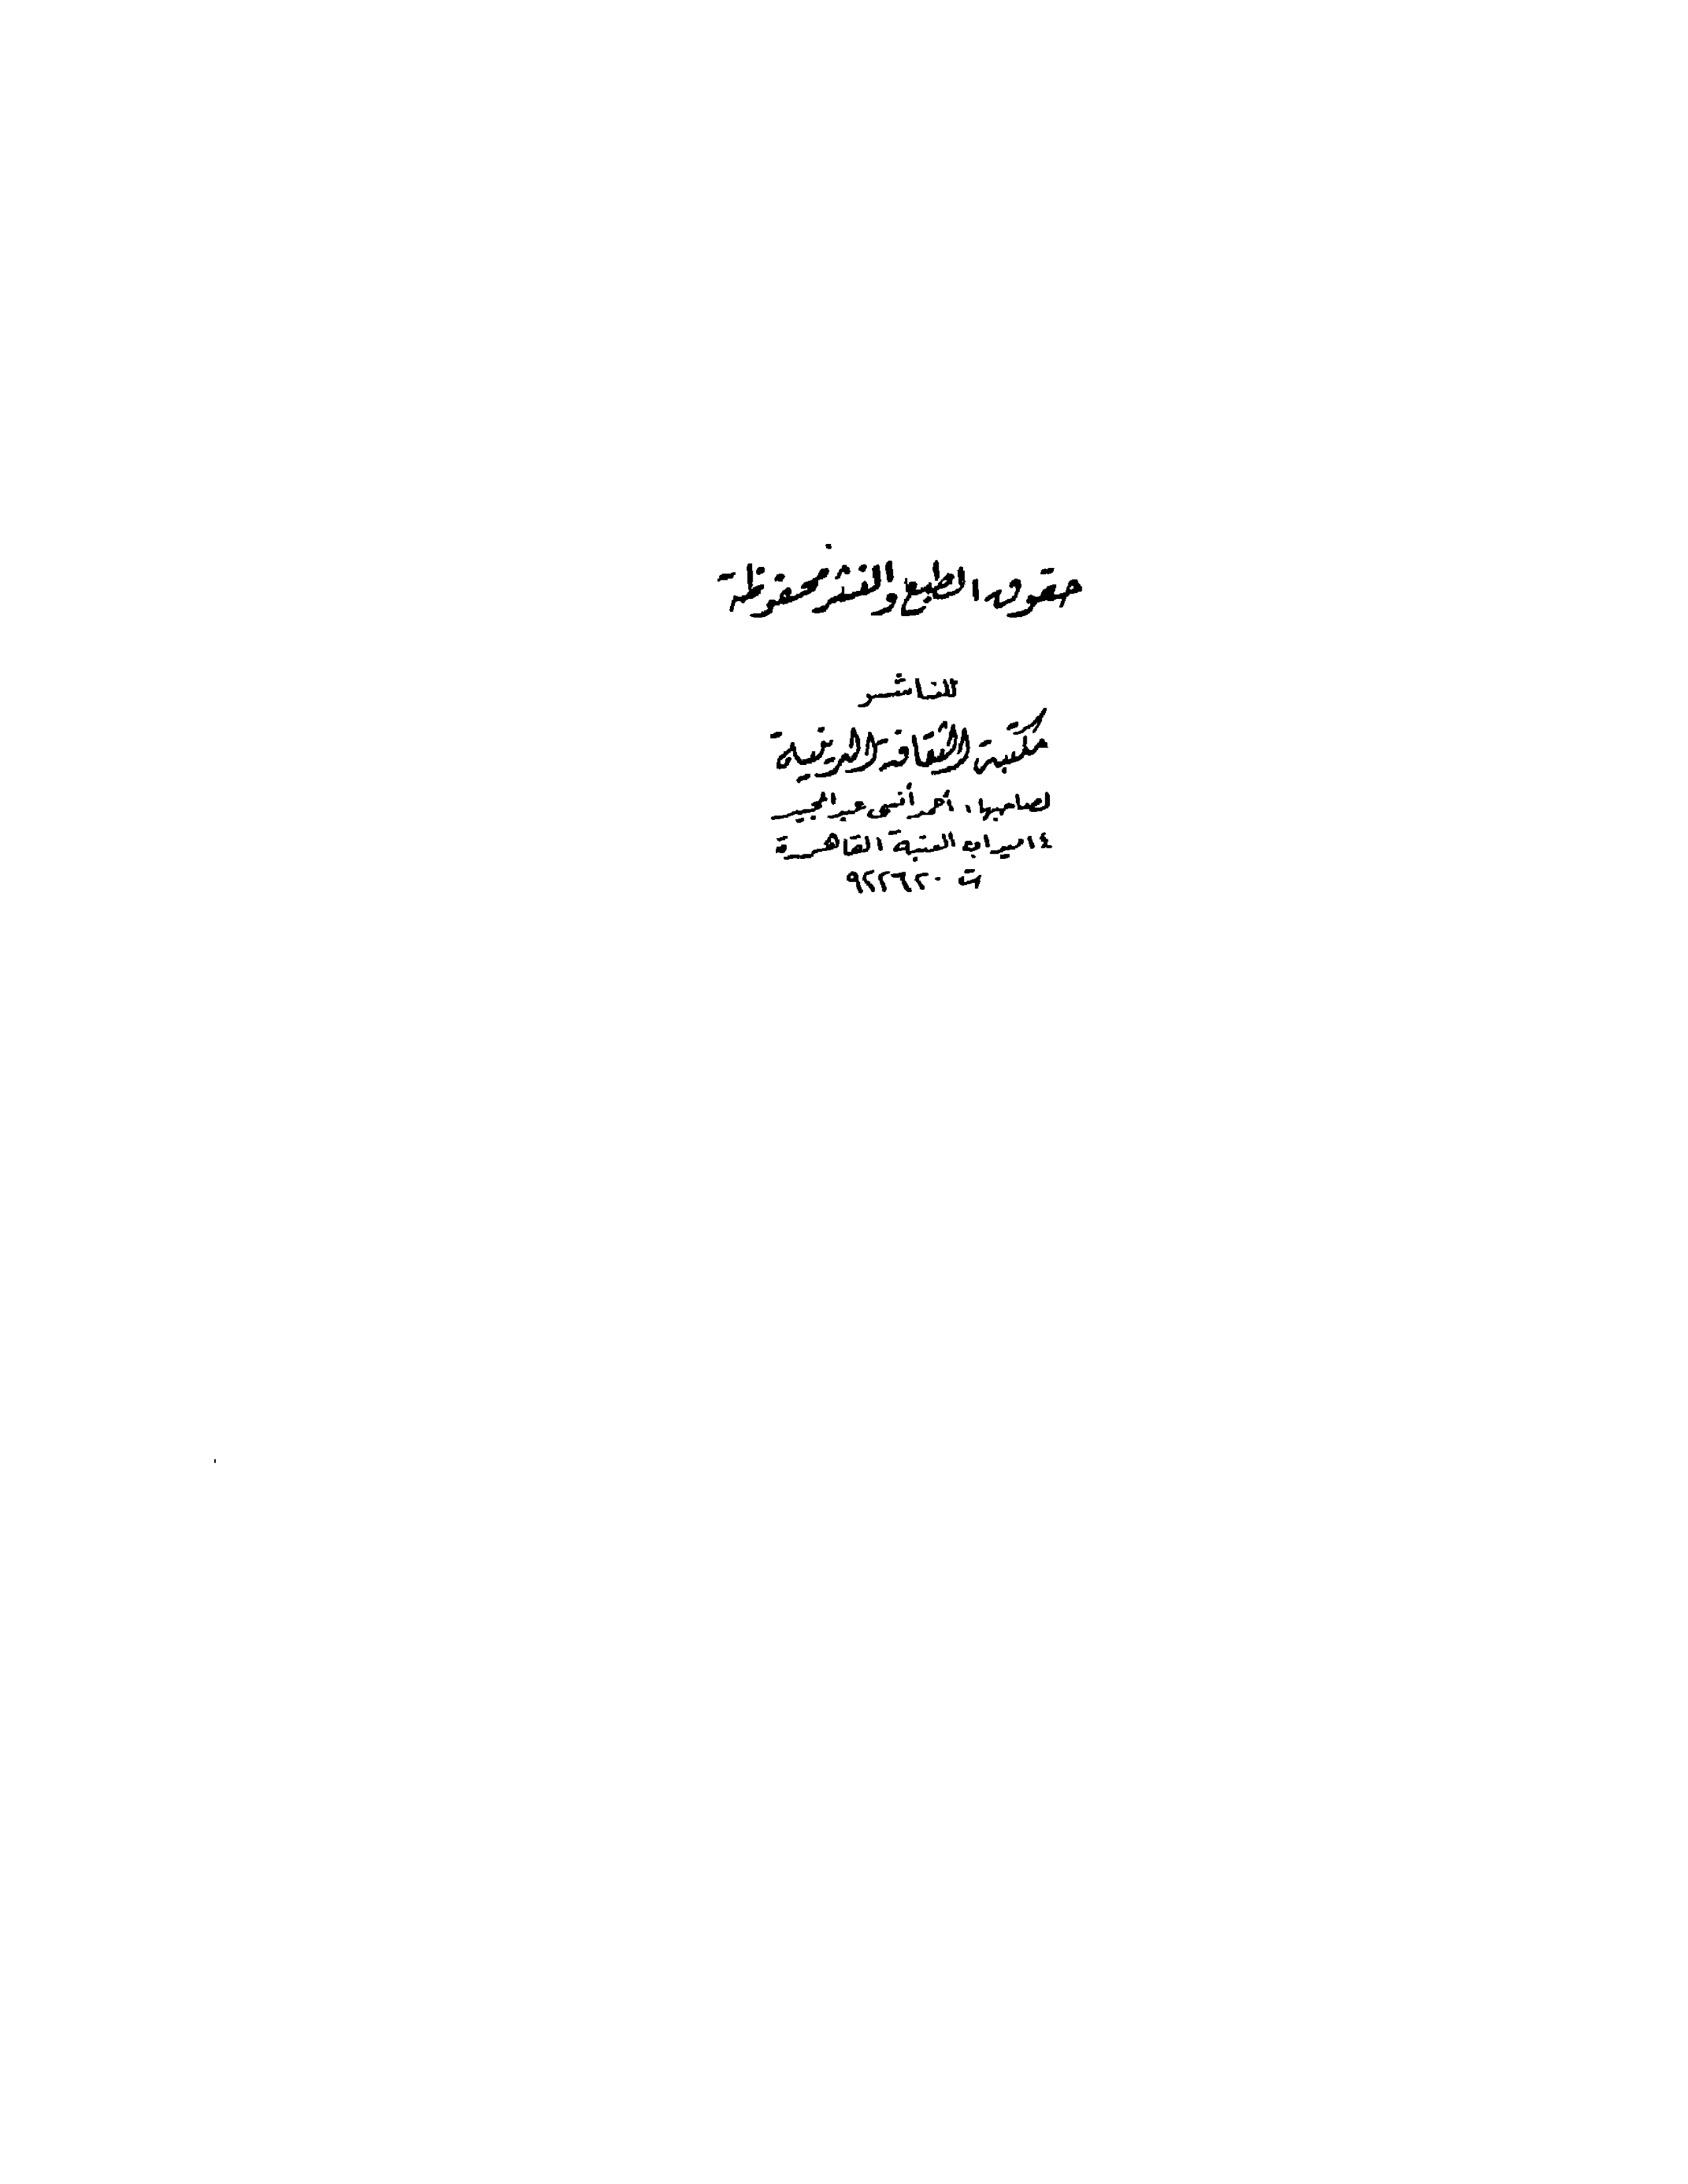 حقوق الطبع والنشر محفوظة
للناشر
مكتبة الثقافة الدينية
لصاحبها، أحمد أنسى عبد المجيد
١٤ ميدان العتبة القاهرة
ت ٩٢٢٦٢٠